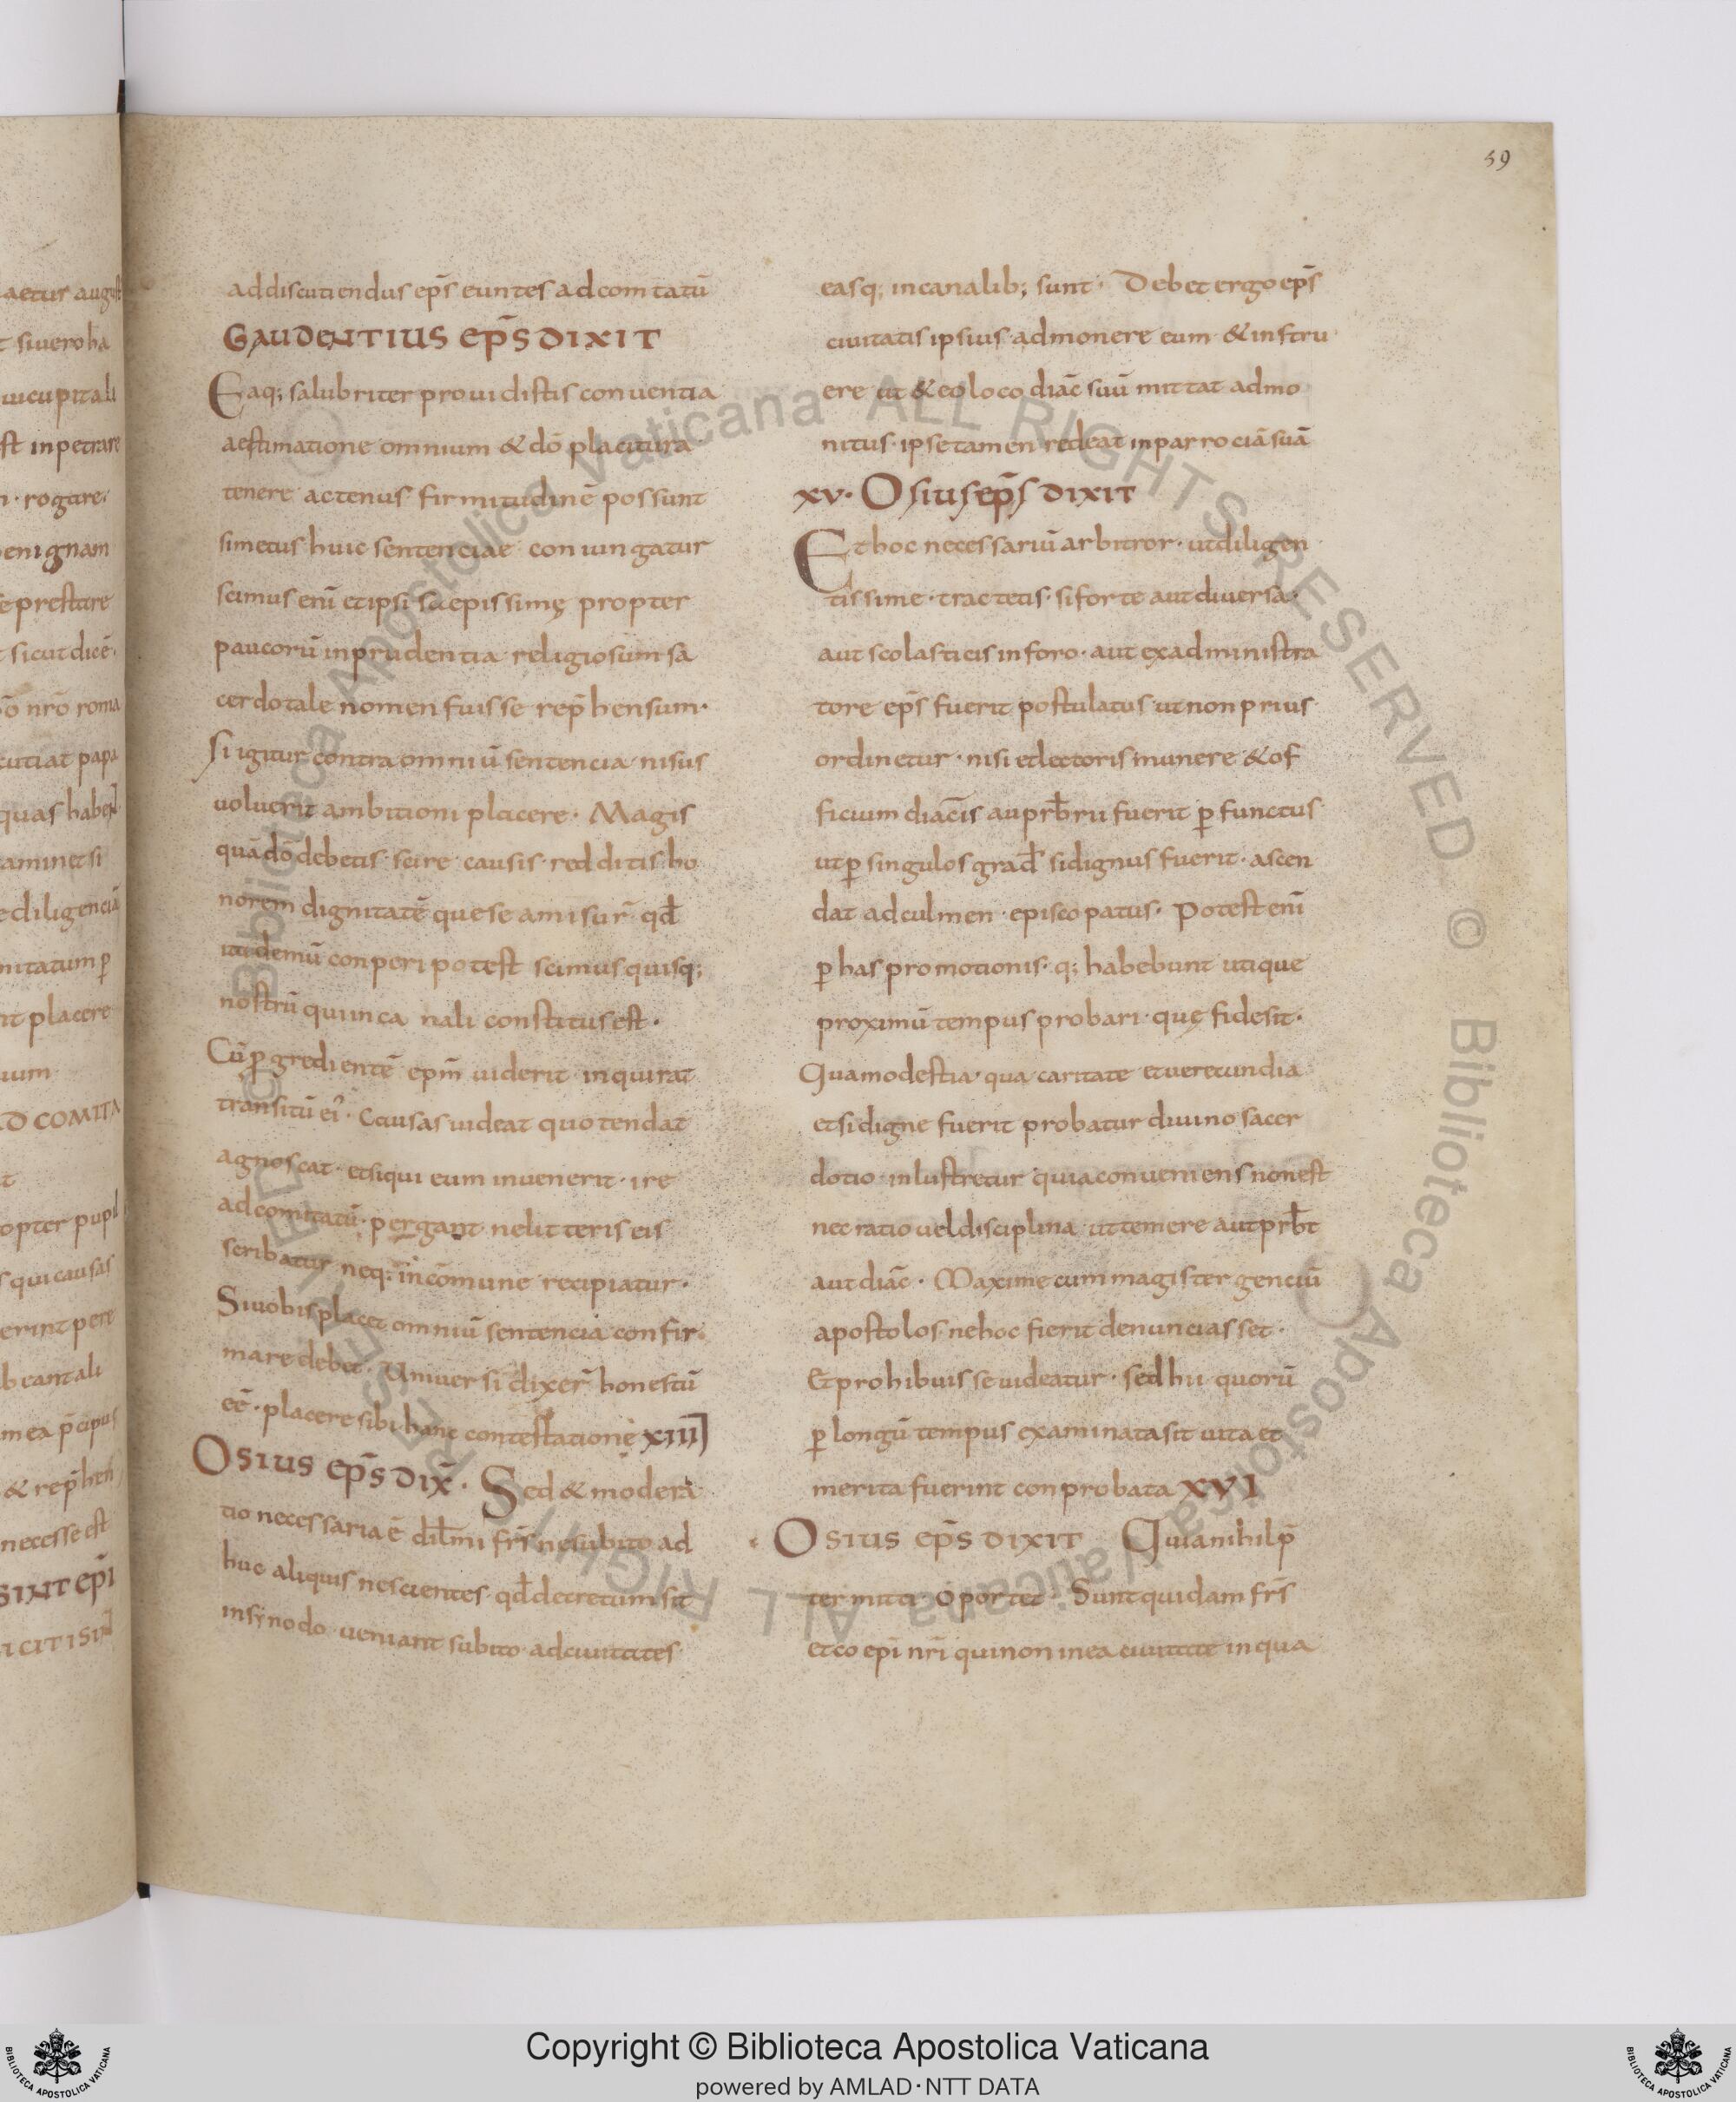 59
aetur august
t siueroħa
uicupitali
st inpetrare
n · rogare
enignam
eprestare
t sicut dicē
ō nr̄o roma
cutiat papa
quas haben
aminetsi
ediligenciā
mitatum ꝑ
nt placere
uum
D COMITA
t
opter pupil
s qui causas
erint pere
beantali
mea p̄cipus
& rep̄hen
necesse est
SIXTepi
ICITISIN
addiscutiendus ep̄s euntes adcomitatū
GAUDENTIUS EP̄S DIXIT
Eaq; salubriter prouidistis conuentia
aestimatione omnium & dō placitura
tenere actenus firmitudinē possunt
simetus huic sentenciae coniungatur
scimus enī etipsi saepissimę propter
paucorū inprudentia religiosum sa
cerdotale nomen fuisse rep̄hensum·
Si igitur contra omniū sentencia nisus
uoluerit ambitioni placere· Magis
quā dō debetis scire causis redditis ho
norem dignitatē quese amisur̄ qđ
itidemū conperi potest scimus quisq;
nostrū quiinca nali constitus est·
Cū ꝑgredientē ep̄m uiderit inquirat
transitū ei᾿· Causas uideat quo tendat
agnoscat· etsiqui eum inuenerit· ire
adcomitatū· pergant nelitteris eis
scribatur neq; incōmune recipiatur·
Siuobisplacet omniū sentencia confir
mare debet· Uniuersi dixer̄ honestū
eē· placere sibi hanc contestationē XIIII
OSIUS EP̄S DIX̄· Sed & modera
tio necessaria ē dil̄mi fr̄s nesubito ad
huc aliquis nescientes qđ decretum sit
insynodo ueniant subito adciuitates
easq; incanalib; sunt· Debet ergo ep̄s
ciuitatis ipsius admonere eum & instru
ere ut & eoloco diāc suū mittat admo
nitus· ipse tamen redeat inparrociā suā
XV· Osius ep̄s DIXIT
Et hoc necessariū arbitror· utdiligen
tissime· tractetis· siforte aut diuersa·
aut scolasticis inforo· aut exadministra
tore ep̄s fuerit postulatus utnon prius
ordinetur· nisi etlectoris munere & of
ficium diac̄is aupr̄bri fuerit ꝑfunctus
utꝑ singulos građ sidignus fuerit· ascen
dat adculmen· episcopatus· Potest enī
ꝑ has promotionis· q; habebunt utique
proximū tempus probari· quę fidesit·
Quamodestia· qua caritate etuerecundia
etsidigne fuerit probatur diuino sacer
dotio· inlustretur quiaconueniens nonest
nec ratio uel disciplina uttemere autpr̄bt
aut diāc· Maxime cum magister genciū
apostolos nehoc fierit denunciasset·
Etprohibuisse uideatur· sed hii quorū
ꝑ longū tempus examinatasit uita et
merita fuerint conprobata XVI
OSIUS EP̄S DIXIT Quianihil p̄
termitti· oportet· Sunt quidam fr̄s
etcoepi nr̄i quinon inea ciuitate in qua
© Biblioteca Apostolica Vaticana ALL RIGHTS RESERVED © Biblioteca Apostolica Vaticana ALL RIGHTS RESERVED
Copyright © Biblioteca Apostolica Vaticana
powered by AMLAD·NTT DATA
BIBLIOTECA APOSTOLICA VATICANA
BIBLIOTECA APOSTOLICA VATICANA